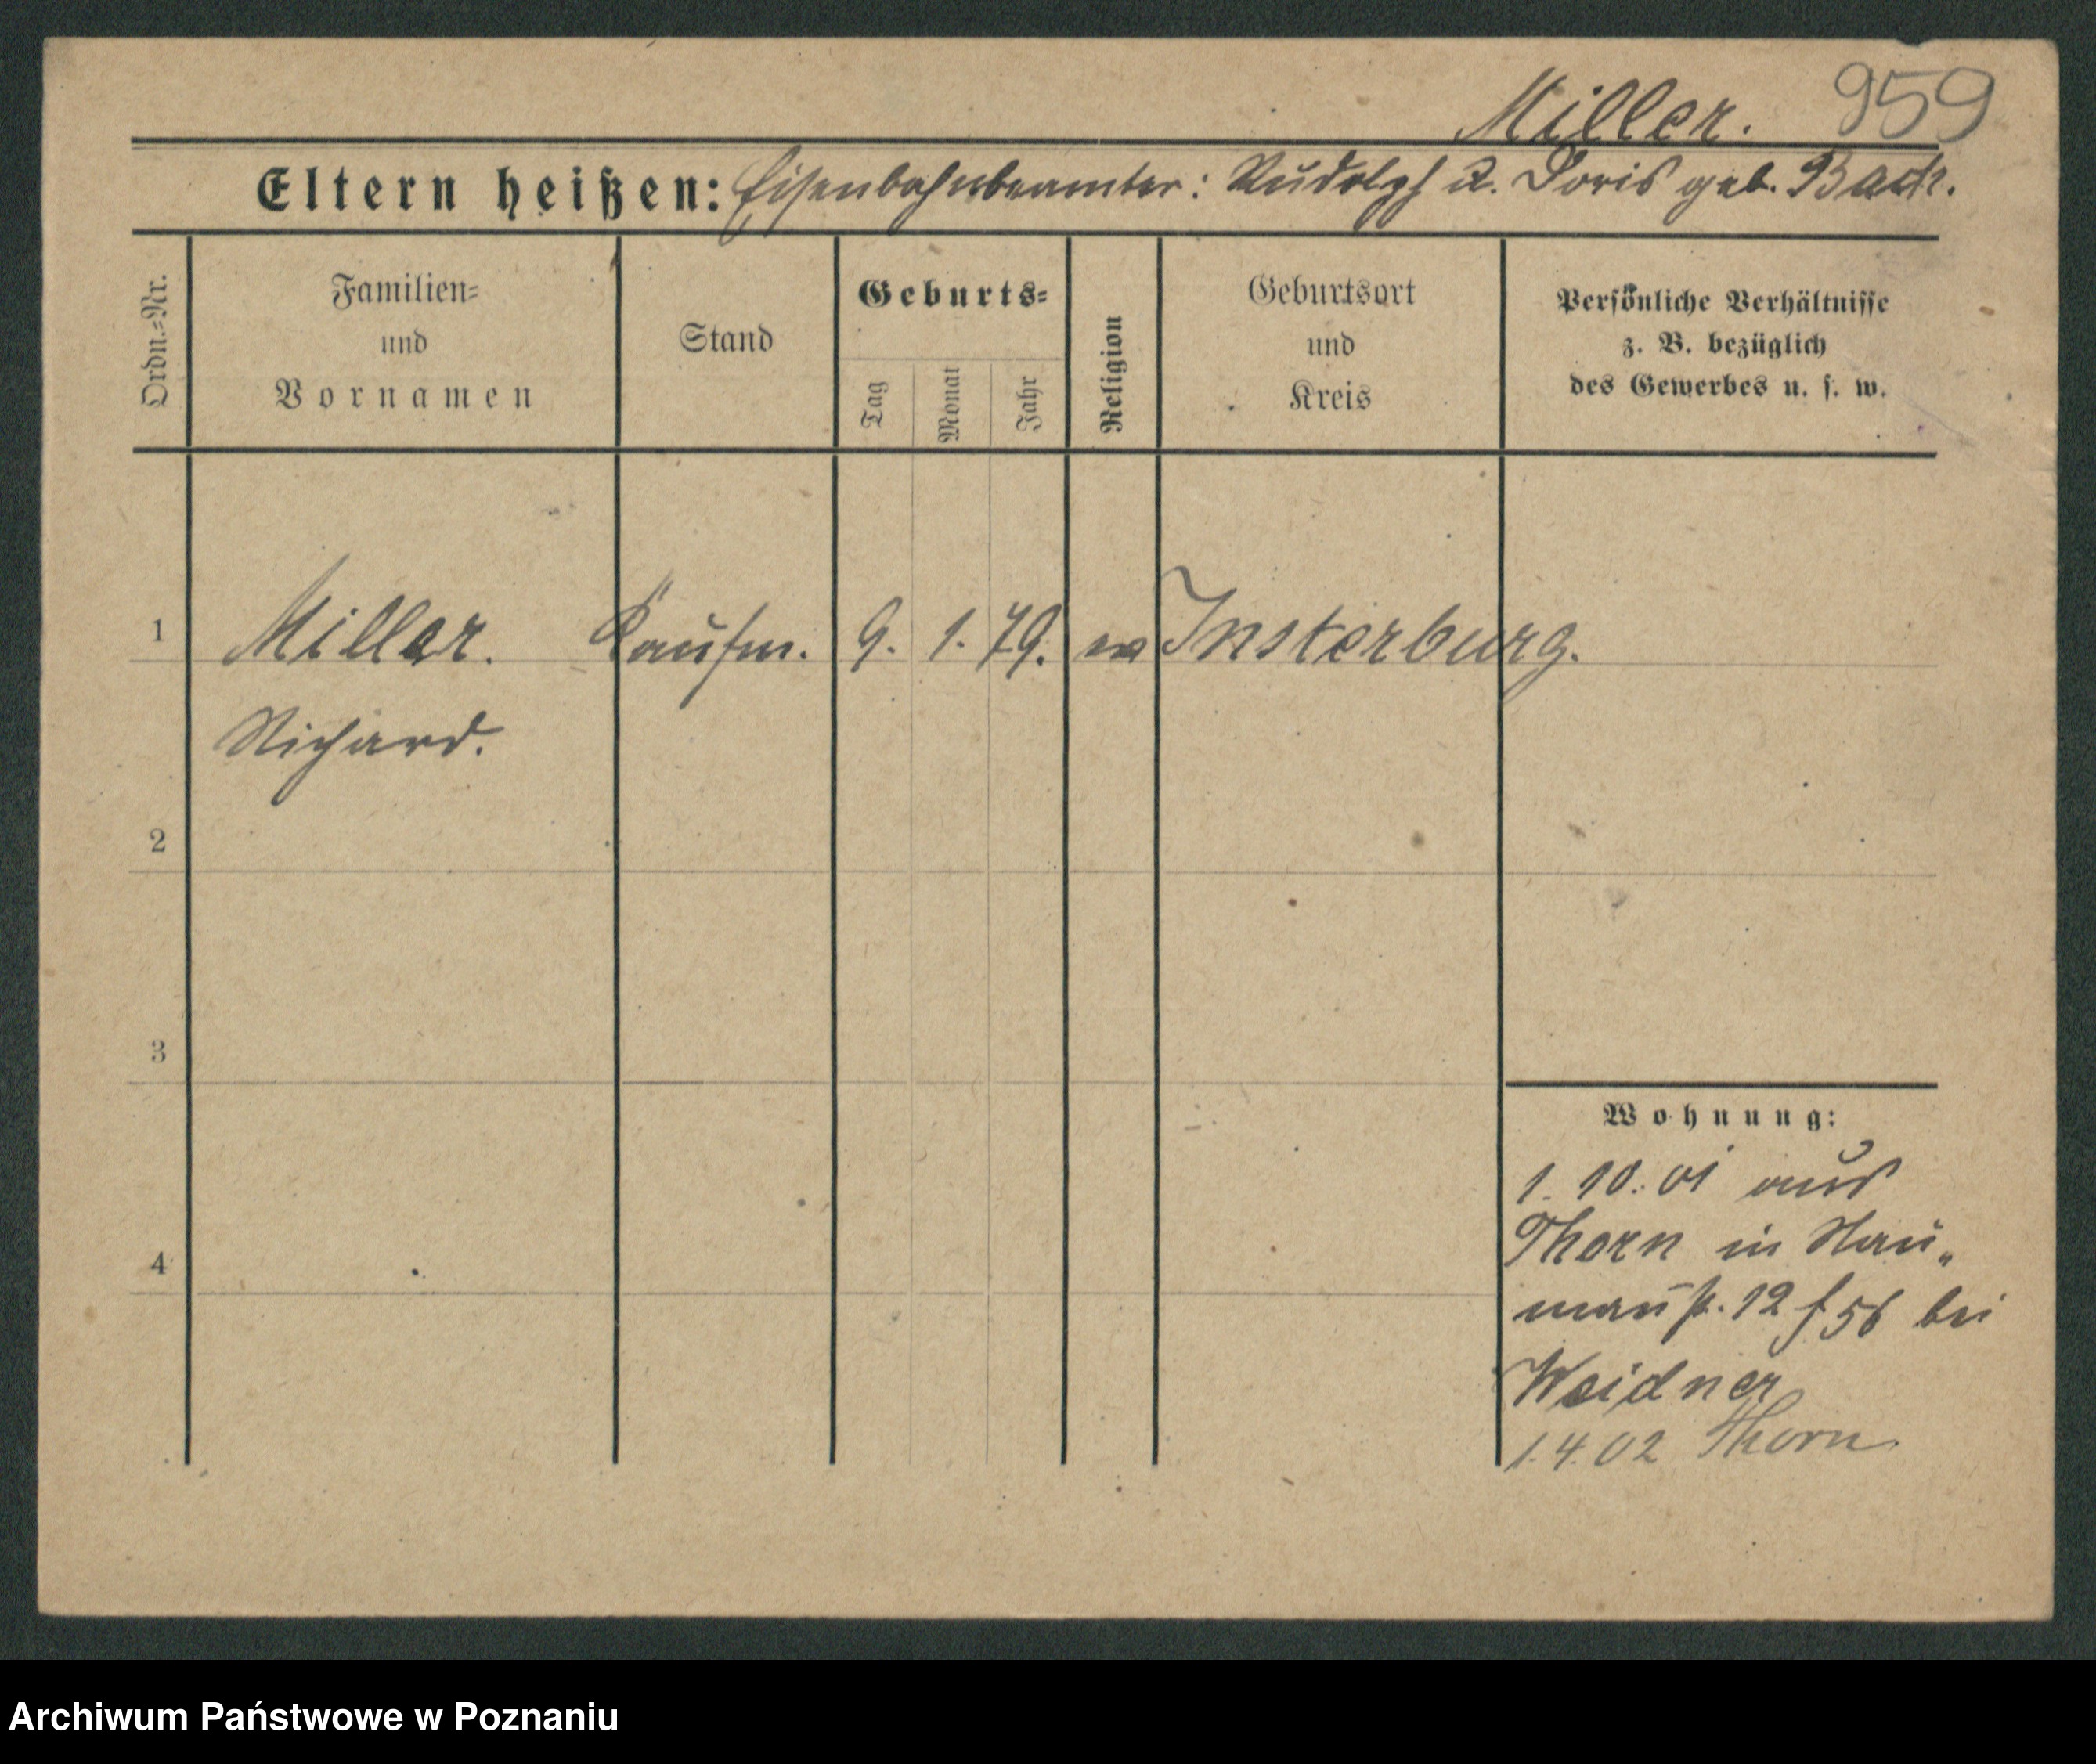 Miller. 959
Eltern heißen: Eisenbahnbeamter: Rudolph u. Doris geb. Bach.
Ordn.=Nr.
Familien=
und
Vornamen
Stand
Geburts=
Tag
Monat
Jahr
Religion
Geburtsort
und
Kreis
Persönliche Verhältnisse
z. B. bezüglich
des Gewerbes u. s. w.
1 Miller. Kaufm. 9. 1. 79. ev Insterburg.
Richard.
2
3
4
Wohnung:
1. 10. 01 aus
Thorn in Nau„
manstr. 12 f 56 bei
Weidner
1.4.02 Thorn
Archiwum Państwowe w Poznaniu